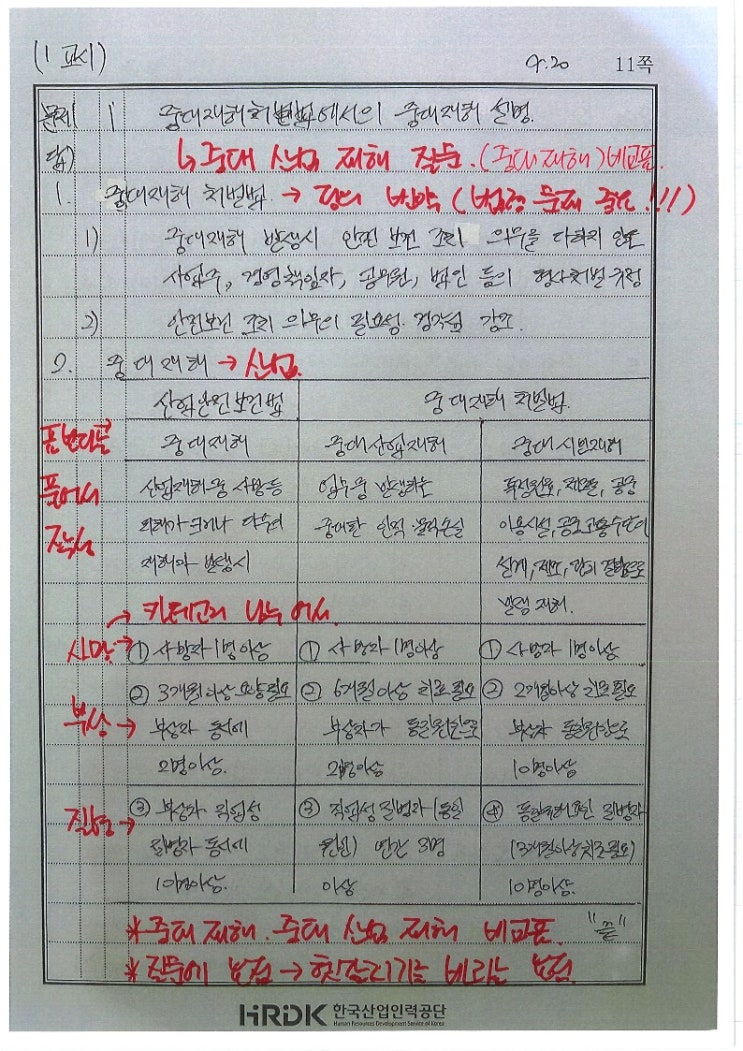 (1 교시)
9.20 11쪽
문제 1 중대재해처벌법에서의 중대재해 설명.
답) ↳ 중대 산업 재해 질문. (중대재해) 비교표.
1. 중대재해 처벌법. → 정의 (법령 문제 중요!!!)
1) 중대재해 발생시 안전 보건 조치 의무를 다하지 않은
사업주, 경영책임자, 공무원, 법인 등의 형사처벌 규정
2) 안전보건 조치 의무의 필요성. 경각심 강조.
2. 중대재해 → 산업.
산업안전보건법 중대재해 처벌법.
중대재해 중대산업재해 중대시민재해
산업재해 중 사망 등
재해정도가 크거나 다수의
재해자 발생시
업무중 발생하는
중대한 인적 물적손실
특정원료, 제조물, 공중
이용시설, 공중교통수단의
설계, 제조, 관리 결함으로
발생 재해.
→ 카테고리 나누어서.
사망 →
① 사망자 1명이상 ① 사망자 1명이상 ① 사망자 1명이상
부상 →
② 3개월이상 요양필요
부상자 동시에
2명이상.
② 6개월이상 치료필요
부상자가 동일원인으로
2명이상
② 2개월이상 치료필요
부상자 동일원인으로
10명이상
질병 →
③ 부상자 직업성
질병자 동시에
10명이상.
③ 직업성 질병자 (동일
원인) 연간 3명
이상
동일원인 질병자
(3개월이상 치료필요)
10명이상.
"끝"
* 중대 재해. 중대 산업 재해 비교표.
* 질문에 초점 → 헷갈리기를 바라는 초점.
HRDK 한국산업인력공단
Human Resources Development Service of Korea